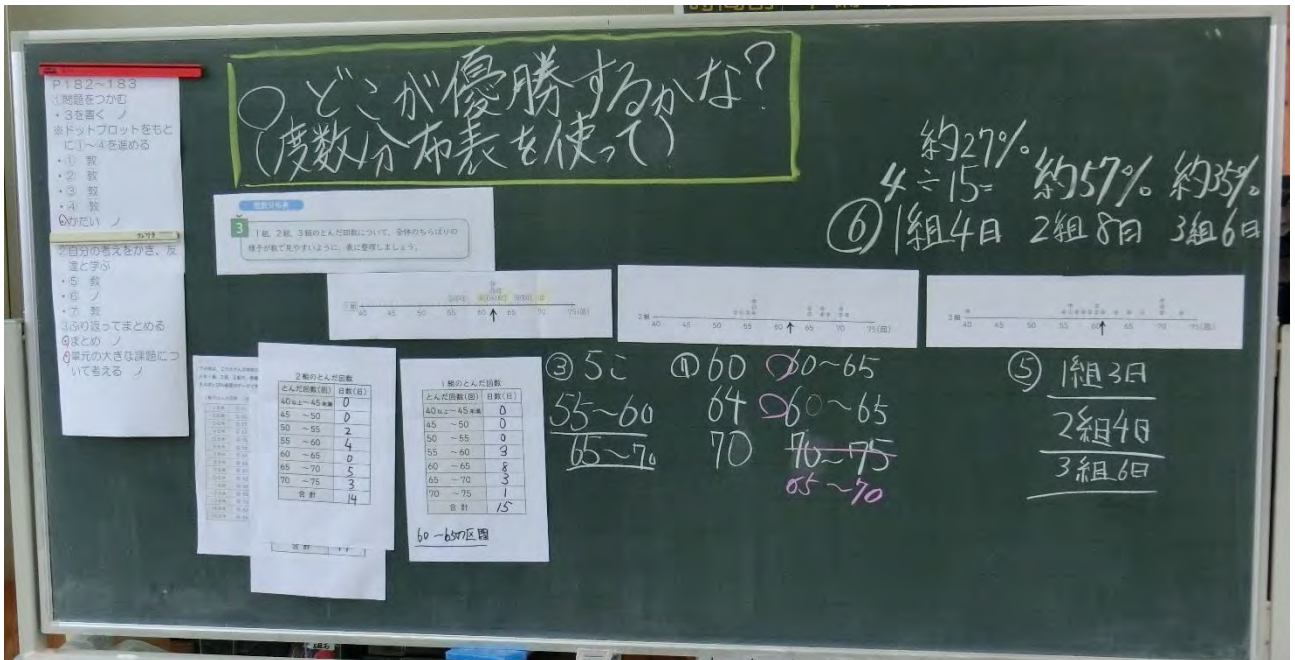 P182～183
①問題をつかむ
・3を書く ノ
※ドットプロットをもと
に①～4を進める
・① 教
・② 教
・③ 教
・④ 教
かだい ノ
②自分の考えをかき、友
達と学ぶ
・⑤ 教
・⑥ ノ
・⑦ 教
3ふり返ってまとめる
まとめ ノ
単元の大きな課題につ
いて考える ノ
○どこが優勝するかな?
(度数分布表を使って)
度数分布表
3
1組、2組、3組のとんだ回数について、全体のちらばりの
様子が数で見やすいように、表に整理しましょう。
約27%
4÷15= 約57% 約35%
⑥ 1組4日 2組8日 3組6日
1組 40 45 50 55 60 65 70 75(回)
2組 40 45 50 55 60 65 70 75(回)
3組 40 45 50 55 60 65 70 75(回)
2組のとんだ回数
とんだ回数(回) 日数(日)
40以上～45未満 0
45 ～50 0
50 ～55 2
55 ～60 4
60 ～65 0
65 ～70 5
70 ～75 3
合計 14
合計
1組のとんだ回数
とんだ回数(回) 日数(日)
40以上～45未満 0
45 ～50 0
50 ～55 0
55 ～60 3
60 ～65 8
65 ～70 3
70 ～75 1
合計 15
60～65の区間
③ 5こ
55～60
65～70
④ 60 60～65
64 60～65
70 70～75
65～70
⑤ 1組3日
2組4日
3組6日